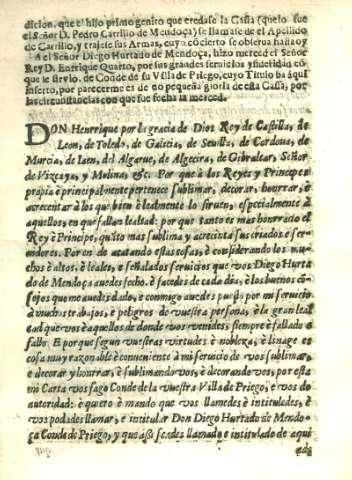 dicion, que el hijo primo genito que eredase la Casa (quelo fue
el Señor D. Pedro Carrillo de Mendoça) se llamase de el Apellido
de Carrillo, y trajese sus Armas, cuyo cócierto se obserua hañaoy
A el Señor Diego Hurtado de Mendoça, hizo merced el Señor
Rey D. Enrique Quarto, por sus grandes seruicios y fidelidad có
que le siruio, de Conde de su Villa de Priego, cuyo Titulo ba áqui
inserto, por parecerme es de no pequeña gloria de esta Casa, por
las circunstancias con que fue fecha la merced.
DON Henrrique por la gracia de Dios Rey de Castilla, de
Leon, de Toledo, de Galicia, de Seuilla, de Cordoua, de
Murcia, de Iaen, del Algarue, de Algecira, de Gibraltar, Señor
de Vizcaya, y Molina, &c. Por que à los Reyes y Principes
propia è principalmente pertenece sublimar, decorar, honrrar, è
acrecentar à los que bien è lealmente lo siruen, especialmente à
aquellos, en que fallan lealtad: por que tanto es mas honrrado el
Rey è Principe, quáto mas sublima y acrecista sus criados e ser-
uidores. Por en de acatando estas cosas, è considerando los mu-
chos è altos, è leales, e señalados seruicios que vos Diego Hurta
do de Mendoça me auedes fecho, è facedes de cada dia, è los buenos có
sejos que me auedes dado, è conmigo auedes puesto, por mi seruicio
à muchos trabajos, e peligros de vuestra persona, è la gran leal
tad que vos è aquellos de donde vos venides, siempre è fallado è
fallo. E por que segun vuestras virtudes è nobleza, è linage es
cosa muy razonable è conueniente à mi seruicio de vos sublimar,
e decorar y honrrar, è sublimando vos, è decorando vos, por esta
mi Carta vos fago Conde de la vuestra Villa de Priego, e vos do
autoridad: è quero è mando que vos llamedes è intituledes, è
vos podades llamar, e intitular Don Diego Hurtado de Mendo-
ça Conde de Priego, y que ásſi seades llamado e intitulado de aqui